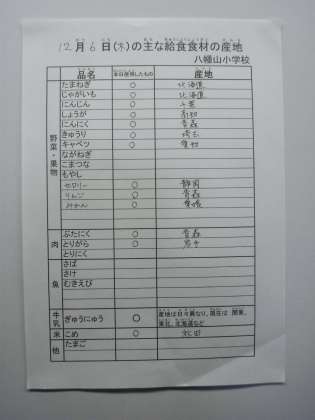 12月6日(木)の主な給食食材の産地
八幡山小学校
品名 本日使用したもの 産地
野菜・果物
たまねぎ ○ 北海道
じゃがいも ○ 北海道
にんじん ○ 千葉
しょうが ○ 高知
にんにく ○ 青森
きゅうり ○ 埼玉
キャベツ ○ 愛知
ながねぎ
こまつな
もやし
セロリー ○ 静岡
りんご ○ 青森
みかん ○ 愛媛
肉
ぶたにく ○ 青森
とりがら ○
とりにく
魚
さば
さけ
むきえび
牛乳 ぎゅうにゅう ○ 産地は日々異なり、現在は 関東、東北、北海道など
米 こめ ○ 秋田
他 たまご